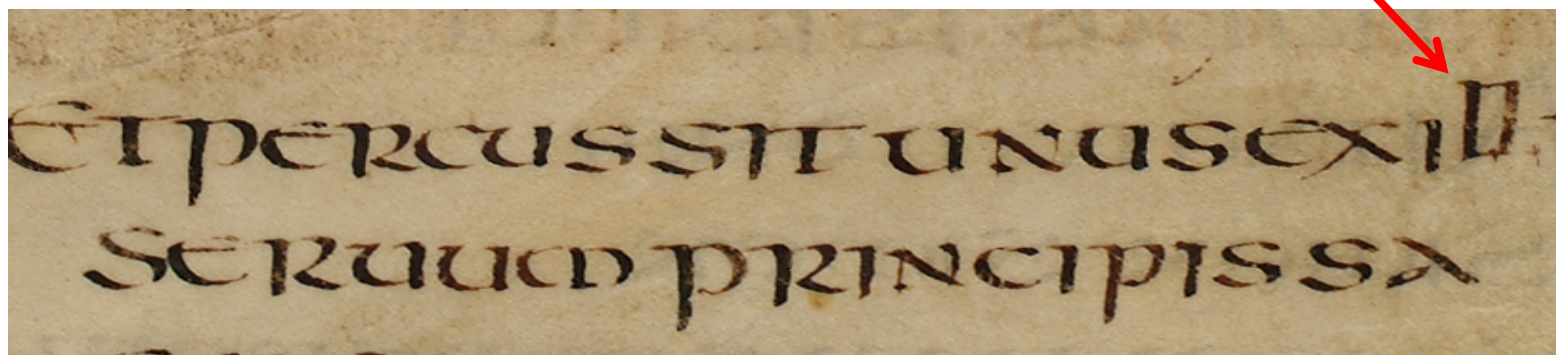 ETPERCUSSIT UNUSEXILL
SERUUM PRINCIPISSA